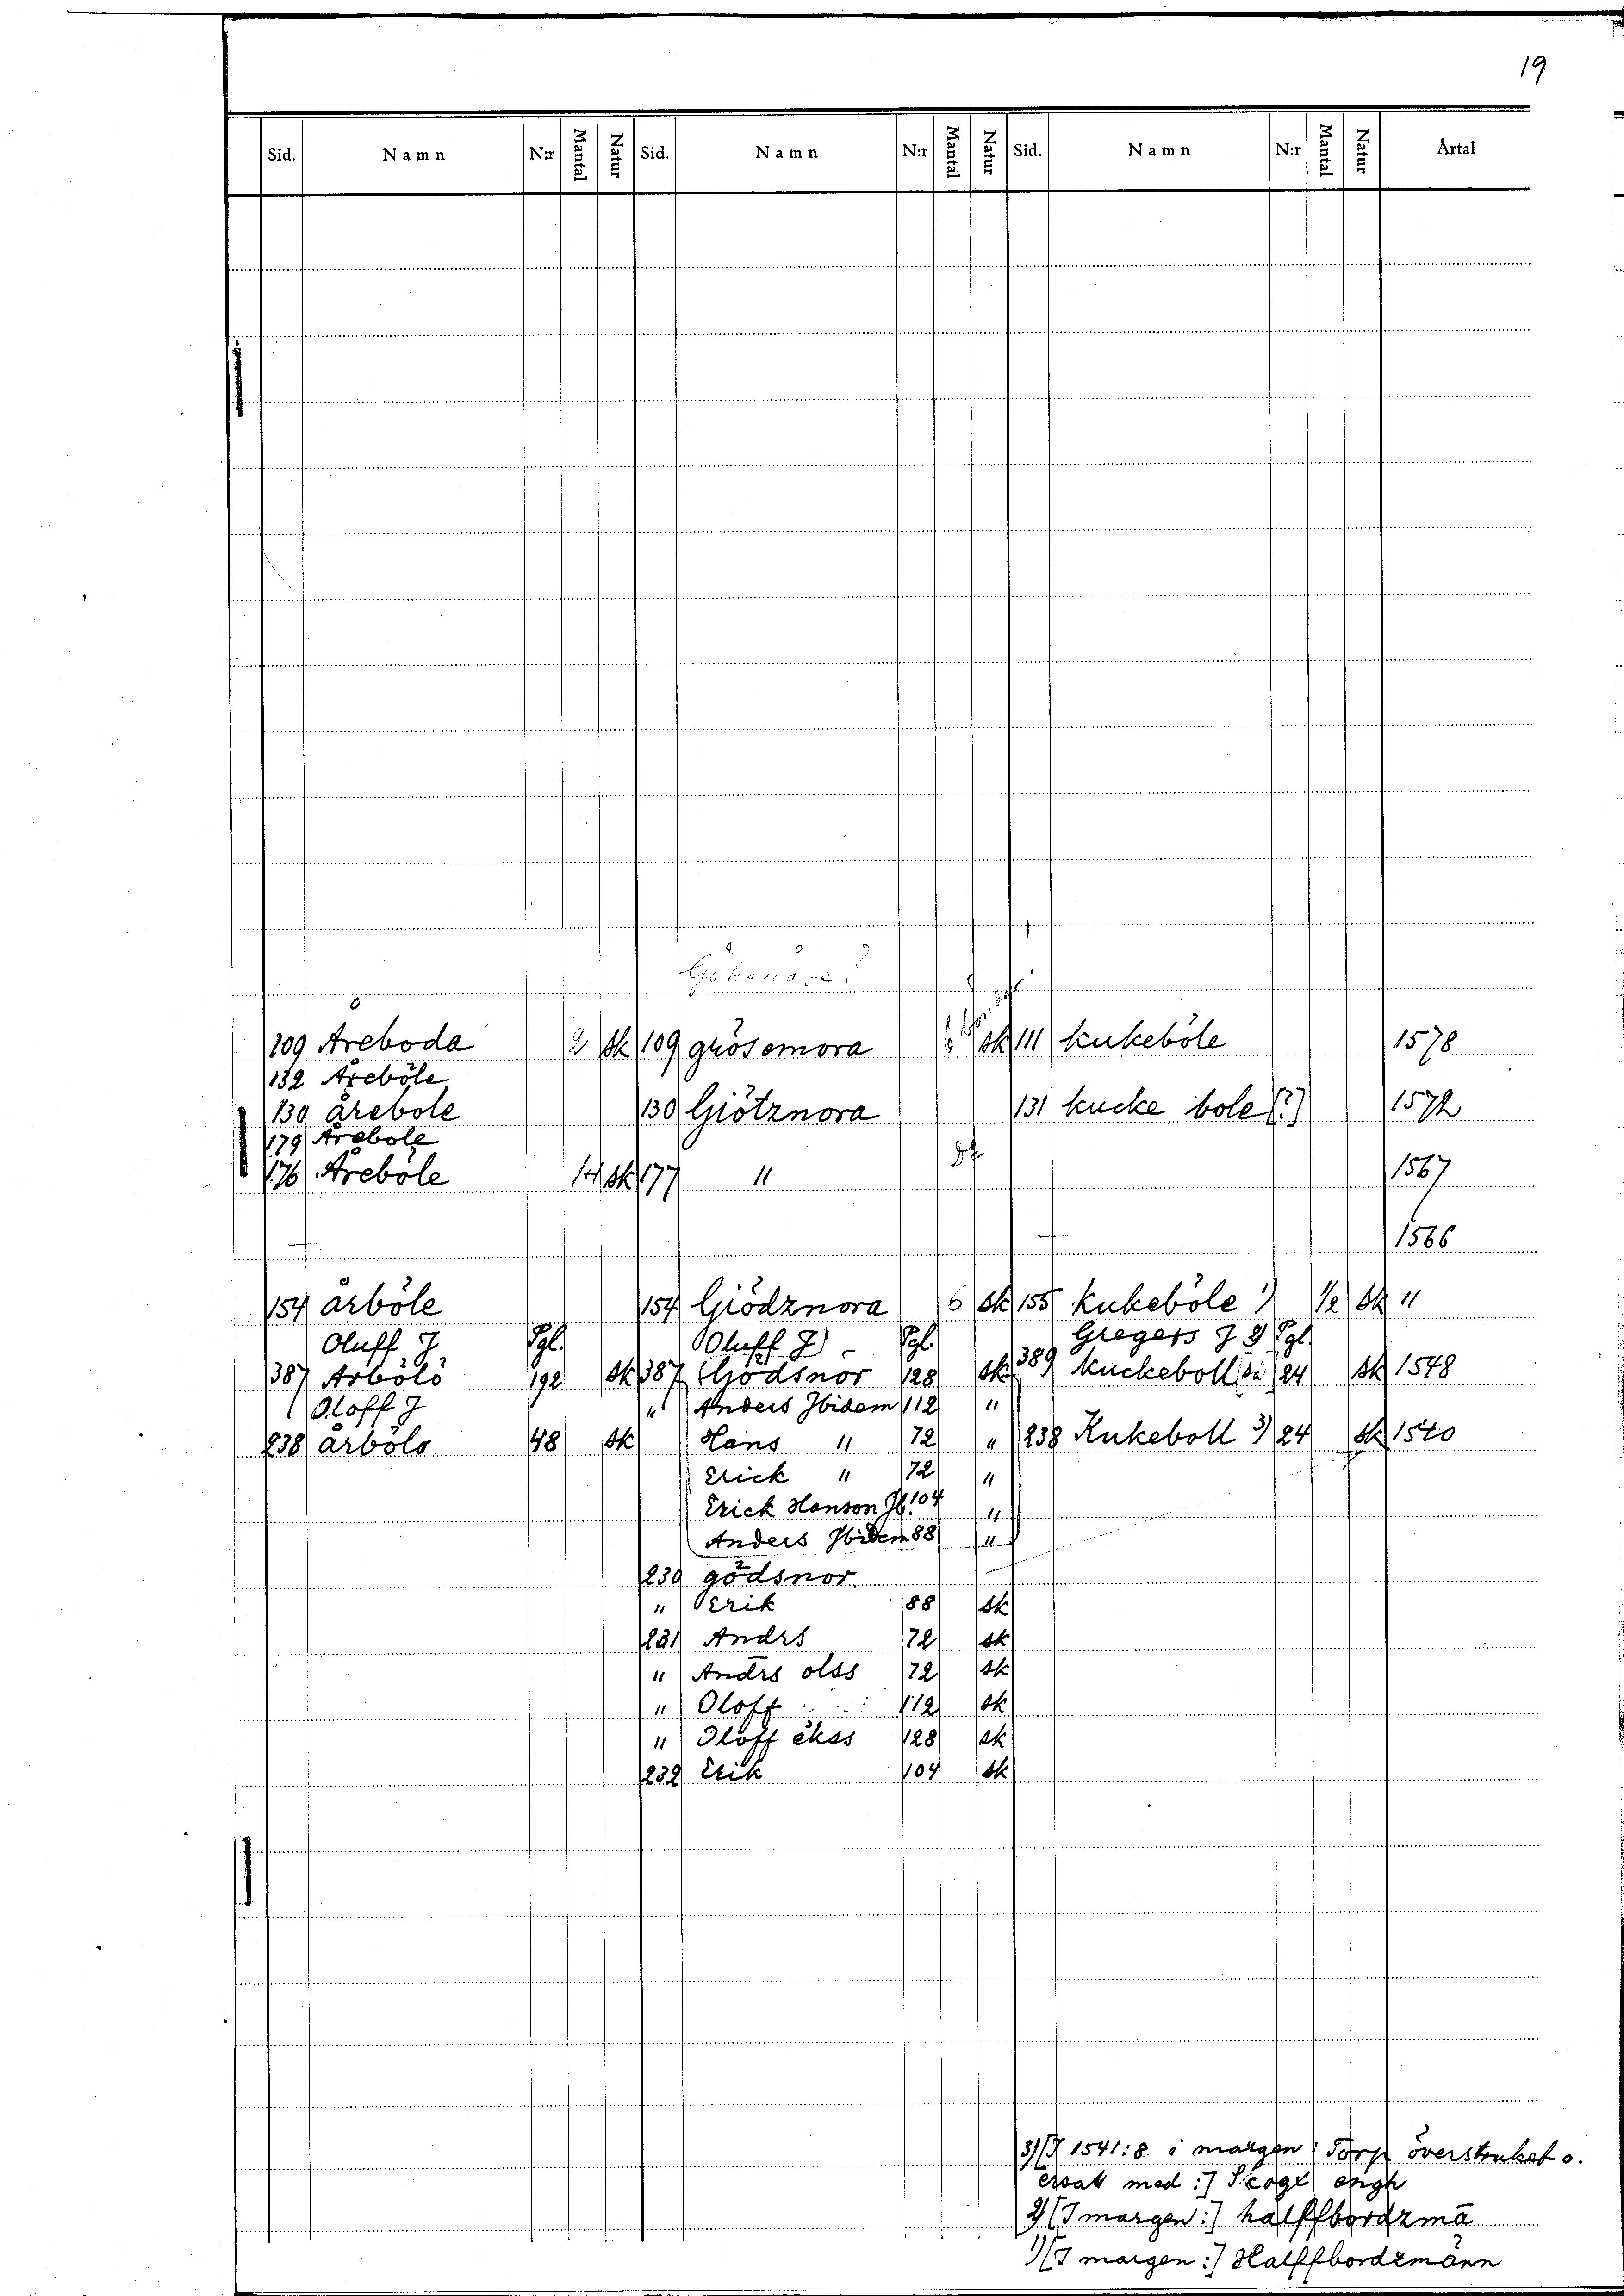 19
Sid. Namn N:r Mantal Natur Sid. Namn N:r Mantal Natur Sid. Namn N:r Mantal Natur Årtal
109 Åreboda 2 sk 109 grösomora 6 sk 111 kukeböle 1578
132 Areböle
130 årebole 130 Giötznora 131 kucke bole [?] 1572
179 Årebole
176 Areböle 14 sk 177 " 1567
1566
154 årböle 154 Giödznora 6 sk 155 kukeböle 1) 1/2 sk "
Oluff J Pgl. Oluff J Pgl. Gregers J 2) Pgl
387 Arbölö 192 sk 387 Giödsnor 128 sk 389 kuckeboll 24 sk 1548
Oloff J " Anders Jbidem 112 "
238 årbölo 48 sk Hans " 72 " 238 Kukeboll 3) 24 sk 1540
Erick " 72 "
Erick Hanson Jb. 104 "
Anders Jbidem 88 "
230 gödsnor
" Erik 88 sk
231 Andrs 72 sk
" Andrs olss 72 sk
" Oloff 112 sk
" Oloff ekss 128 sk
232 Erik 104 sk
3) [J 1541:8 i margen: Torp överstruket o.
ersatt med:] Skogx engh
2) [J margen:] halffbordzmā
1) [J margen:] Halffbordzmänn